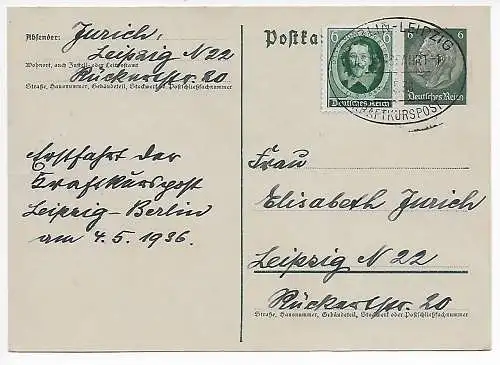 Absender: Jurich,
Leipzig N 22
Wohnort, auch Zustell- oder Leitpostamt
Rückertstr. 20
Straße, Hausnummer, Gebäudeteil, Stockwerk oder Postschließfachnummer
Erstfahrt der
Kraftkurspost
Leipzig-Berlin
am 4.5.1936.
Postka
6 6
Deutsches Reich
LIN-LEIPZIG
KRAFTKURSPOST
6 6
Deutsches Reich
Frau
Elisabeth Jurich
Leipzig N 22
Rückertstr. 20
Straße, Hausnummer, Gebäudeteil, Stockwerk oder Postschließfachnummer